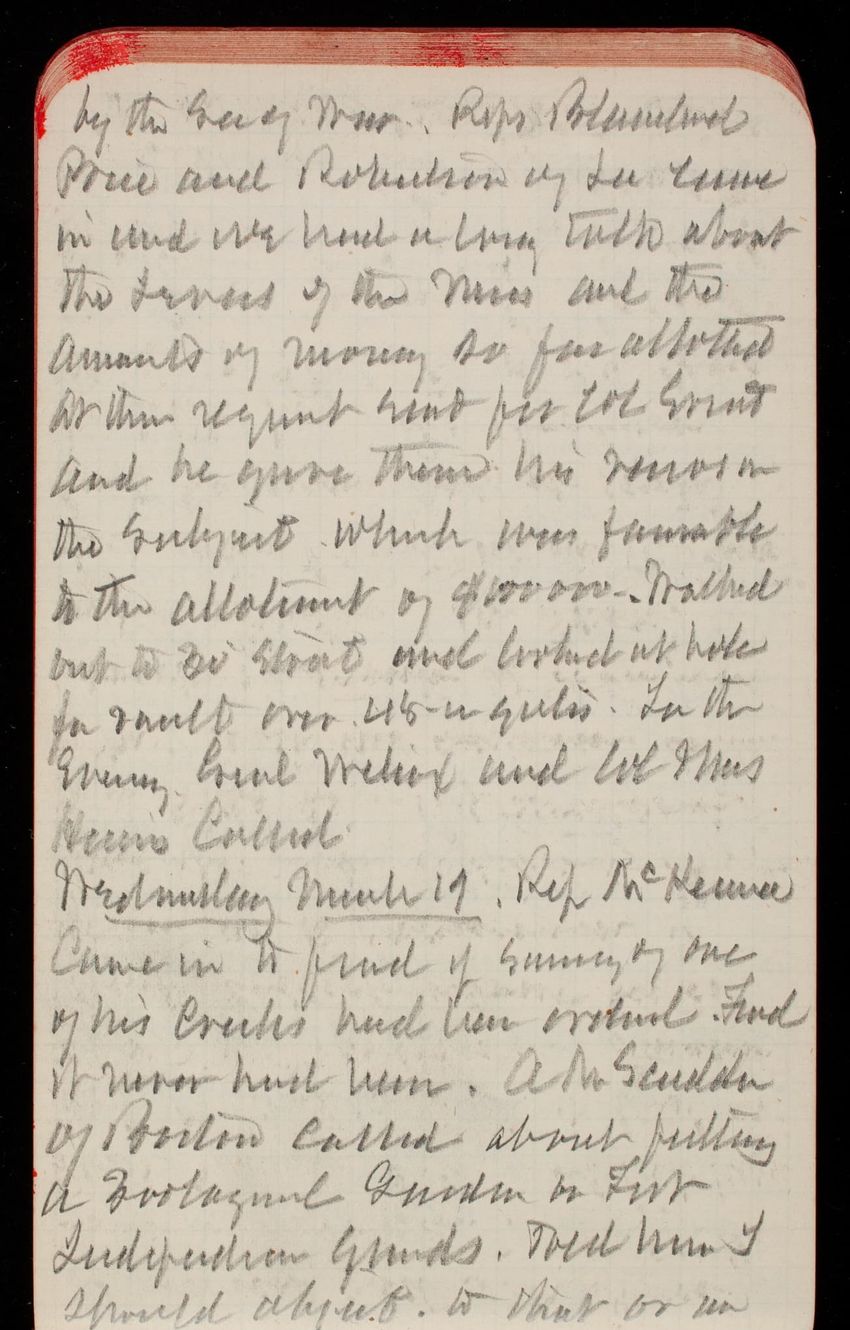 by the Sec of War. Reps Blanchard
Price and Robertson of La came
in and we had a long talk about
the Levees of the Miss and the
amounts of money so far allotted
At their request sent for Col
and he gave them his views on
the subject which was favorable
to the allotment of $100 000-. Walked
out to street and looked at hole
for vault over. In the
Evening Genl Wilcox and Col Thos
Called
Wednesday March 19. Rep McKenna
Came in to find if survey of one
of his Creeks had been ordered. Find
it never had been. A Mr Scudder
of Boston called about putting
a Zoological Garden on Fort
Independence Grounds. Told him I
should object. to that or an